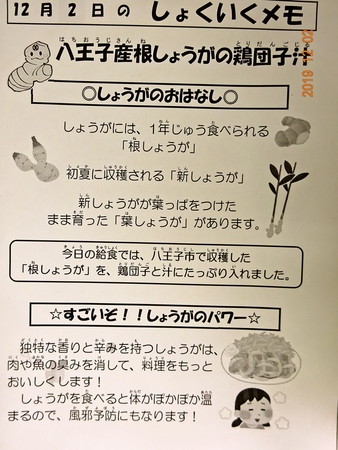 12月2日の しょくいくメモ
八王子産根しょうがの鶏団子汁
○しょうがのおはなし○
しょうがには、1年じゅう食べられる
「根しょうが」
初夏に収穫される「新しょうが」
新しょうがが葉っぱをつけた
まま育った「葉しょうが」があります。
今日の給食では、八王子市で収穫した
「根しょうが」を、鶏団子と汁にたっぷり入れました。
☆すごいぞ!!しょうがのパワー☆
独特な香りと辛みを持つしょうがは、
肉や魚の臭みを消して、料理をもっと
おいしくします！
しょうがを食べると体がぽかぽか温
まるので、風邪予防にもなります！